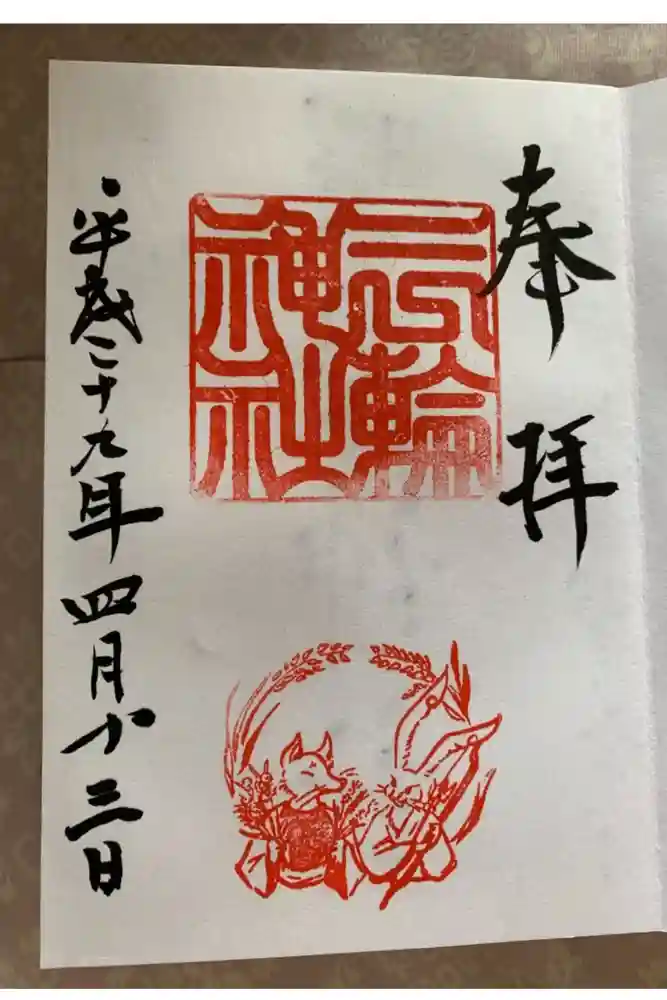 奉拝
三輪
神社
平成二十九年四月十三日